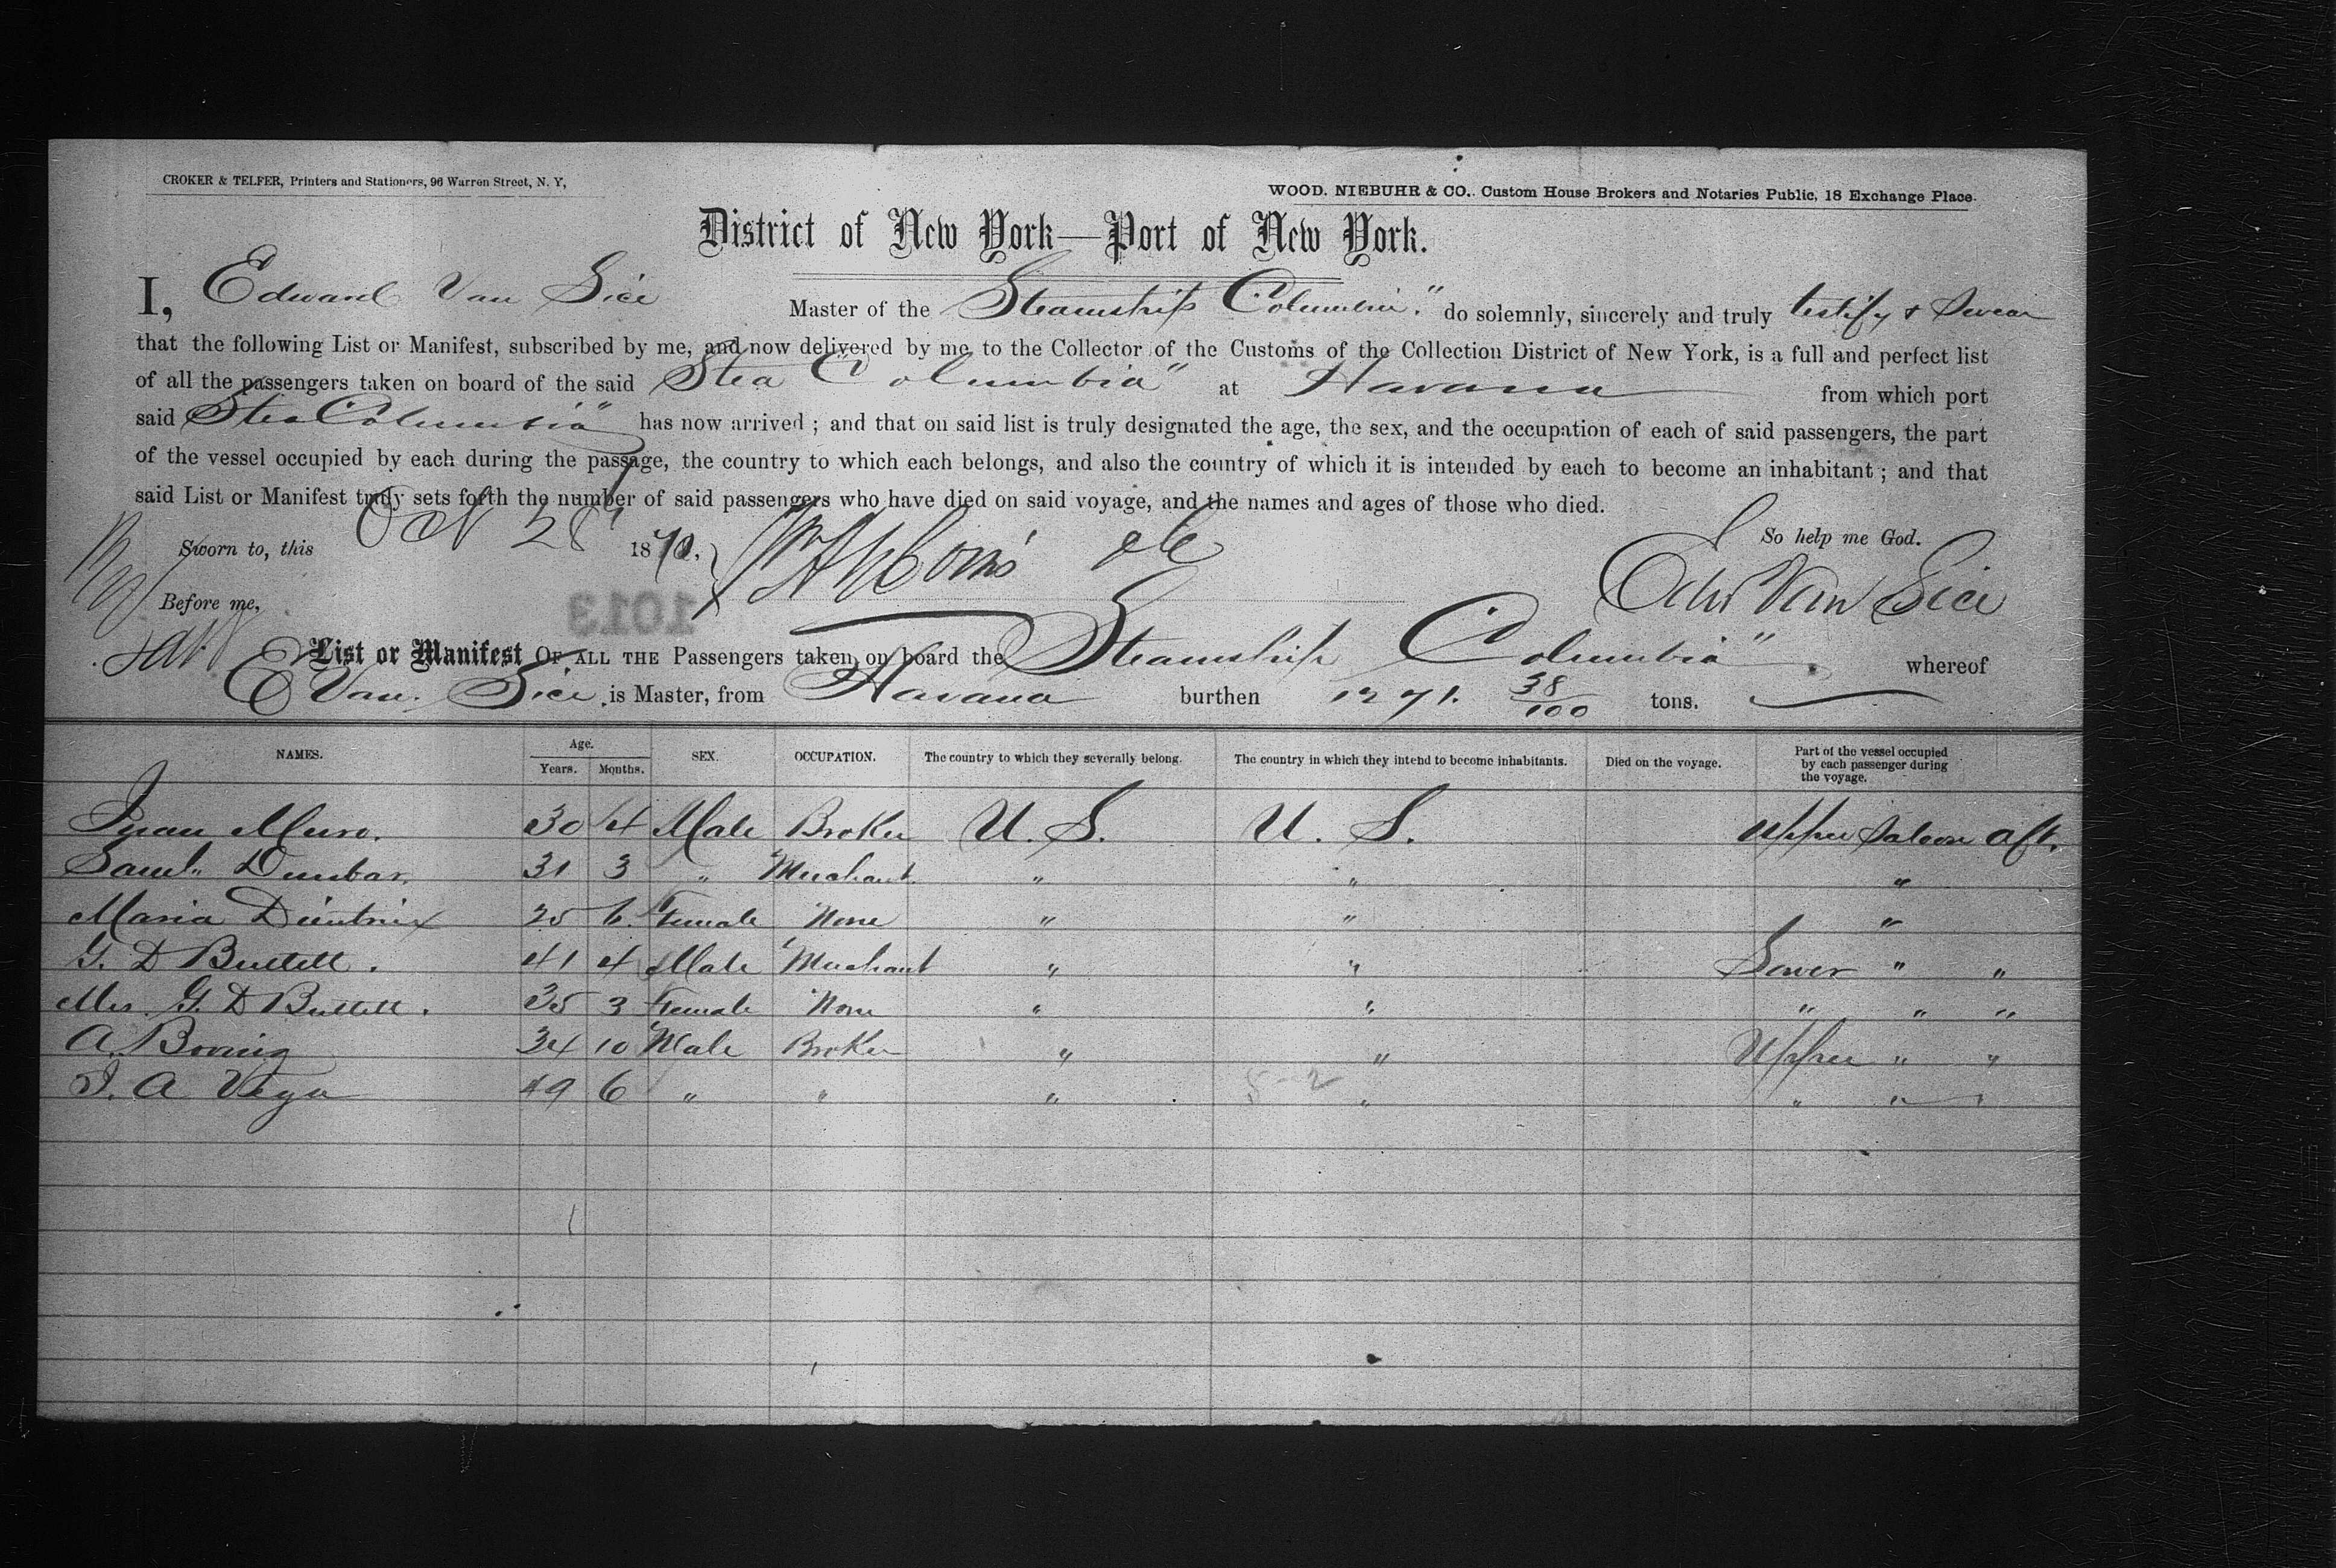 CROKER & TELFER, Printers and Stationers, 96 Warren Street, N. Y,
WOOD. NIEBUHR & CO.. Custom House Brokers and Notaries Public, 18 Exchange Place.
District of New York—Port of New York.
I, Edward Van Sice Master of the Steamship Columbia." do solemnly, sincerely and truly testify & swear
that the following List or Manifest, subscribed by me, and now delivered by me to the Collector of the Customs of the Collection District of New York, is a full and perfect list
of all the passengers taken on board of the said Stea "Columbia" at Havana from which port
said Stea Columbia" has now arrived ; and that on said list is truly designated the age, the sex, and the occupation of each of said passengers, the part
of the vessel occupied by each during the passage, the country to which each belongs, and also the country of which it is intended by each to become an inhabitant ; and that
said List or Manifest truly sets forth the number of said passengers who have died on said voyage, and the names and ages of those who died.
So help me God.
Sworn to, this Oct 28 1870,
Edw Van Sice
Before me,
1013
List or Manifest OF ALL THE Passengers taken on board the Steamship Columbia" whereof
E Van Sice is Master, from Havana burthen 1271. 38/100 tons.
NAMES. Age. Years. Months. SEX. OCCUPATION. The country to which they severally belong. The country in which they intend to become inhabitants. Died on the voyage. Part of the vessel occupied by each passenger during the voyage.
Juan Muro. 30 4 Male Broker U. S. U. S. Upper Saloon aft.
Saml. Dunbar. 31 3 " Merchant. " " "
Maria 25 6. Female None " " "
G. D Buttell. 41 4 Male Merchant " " Lower " "
Mrs. G. D Buttell. 35 3 Female None " " " " "
A. 34 10 Male Broker " " Upper " "
J. A Vega 49 6 " " " " " " "
5-2